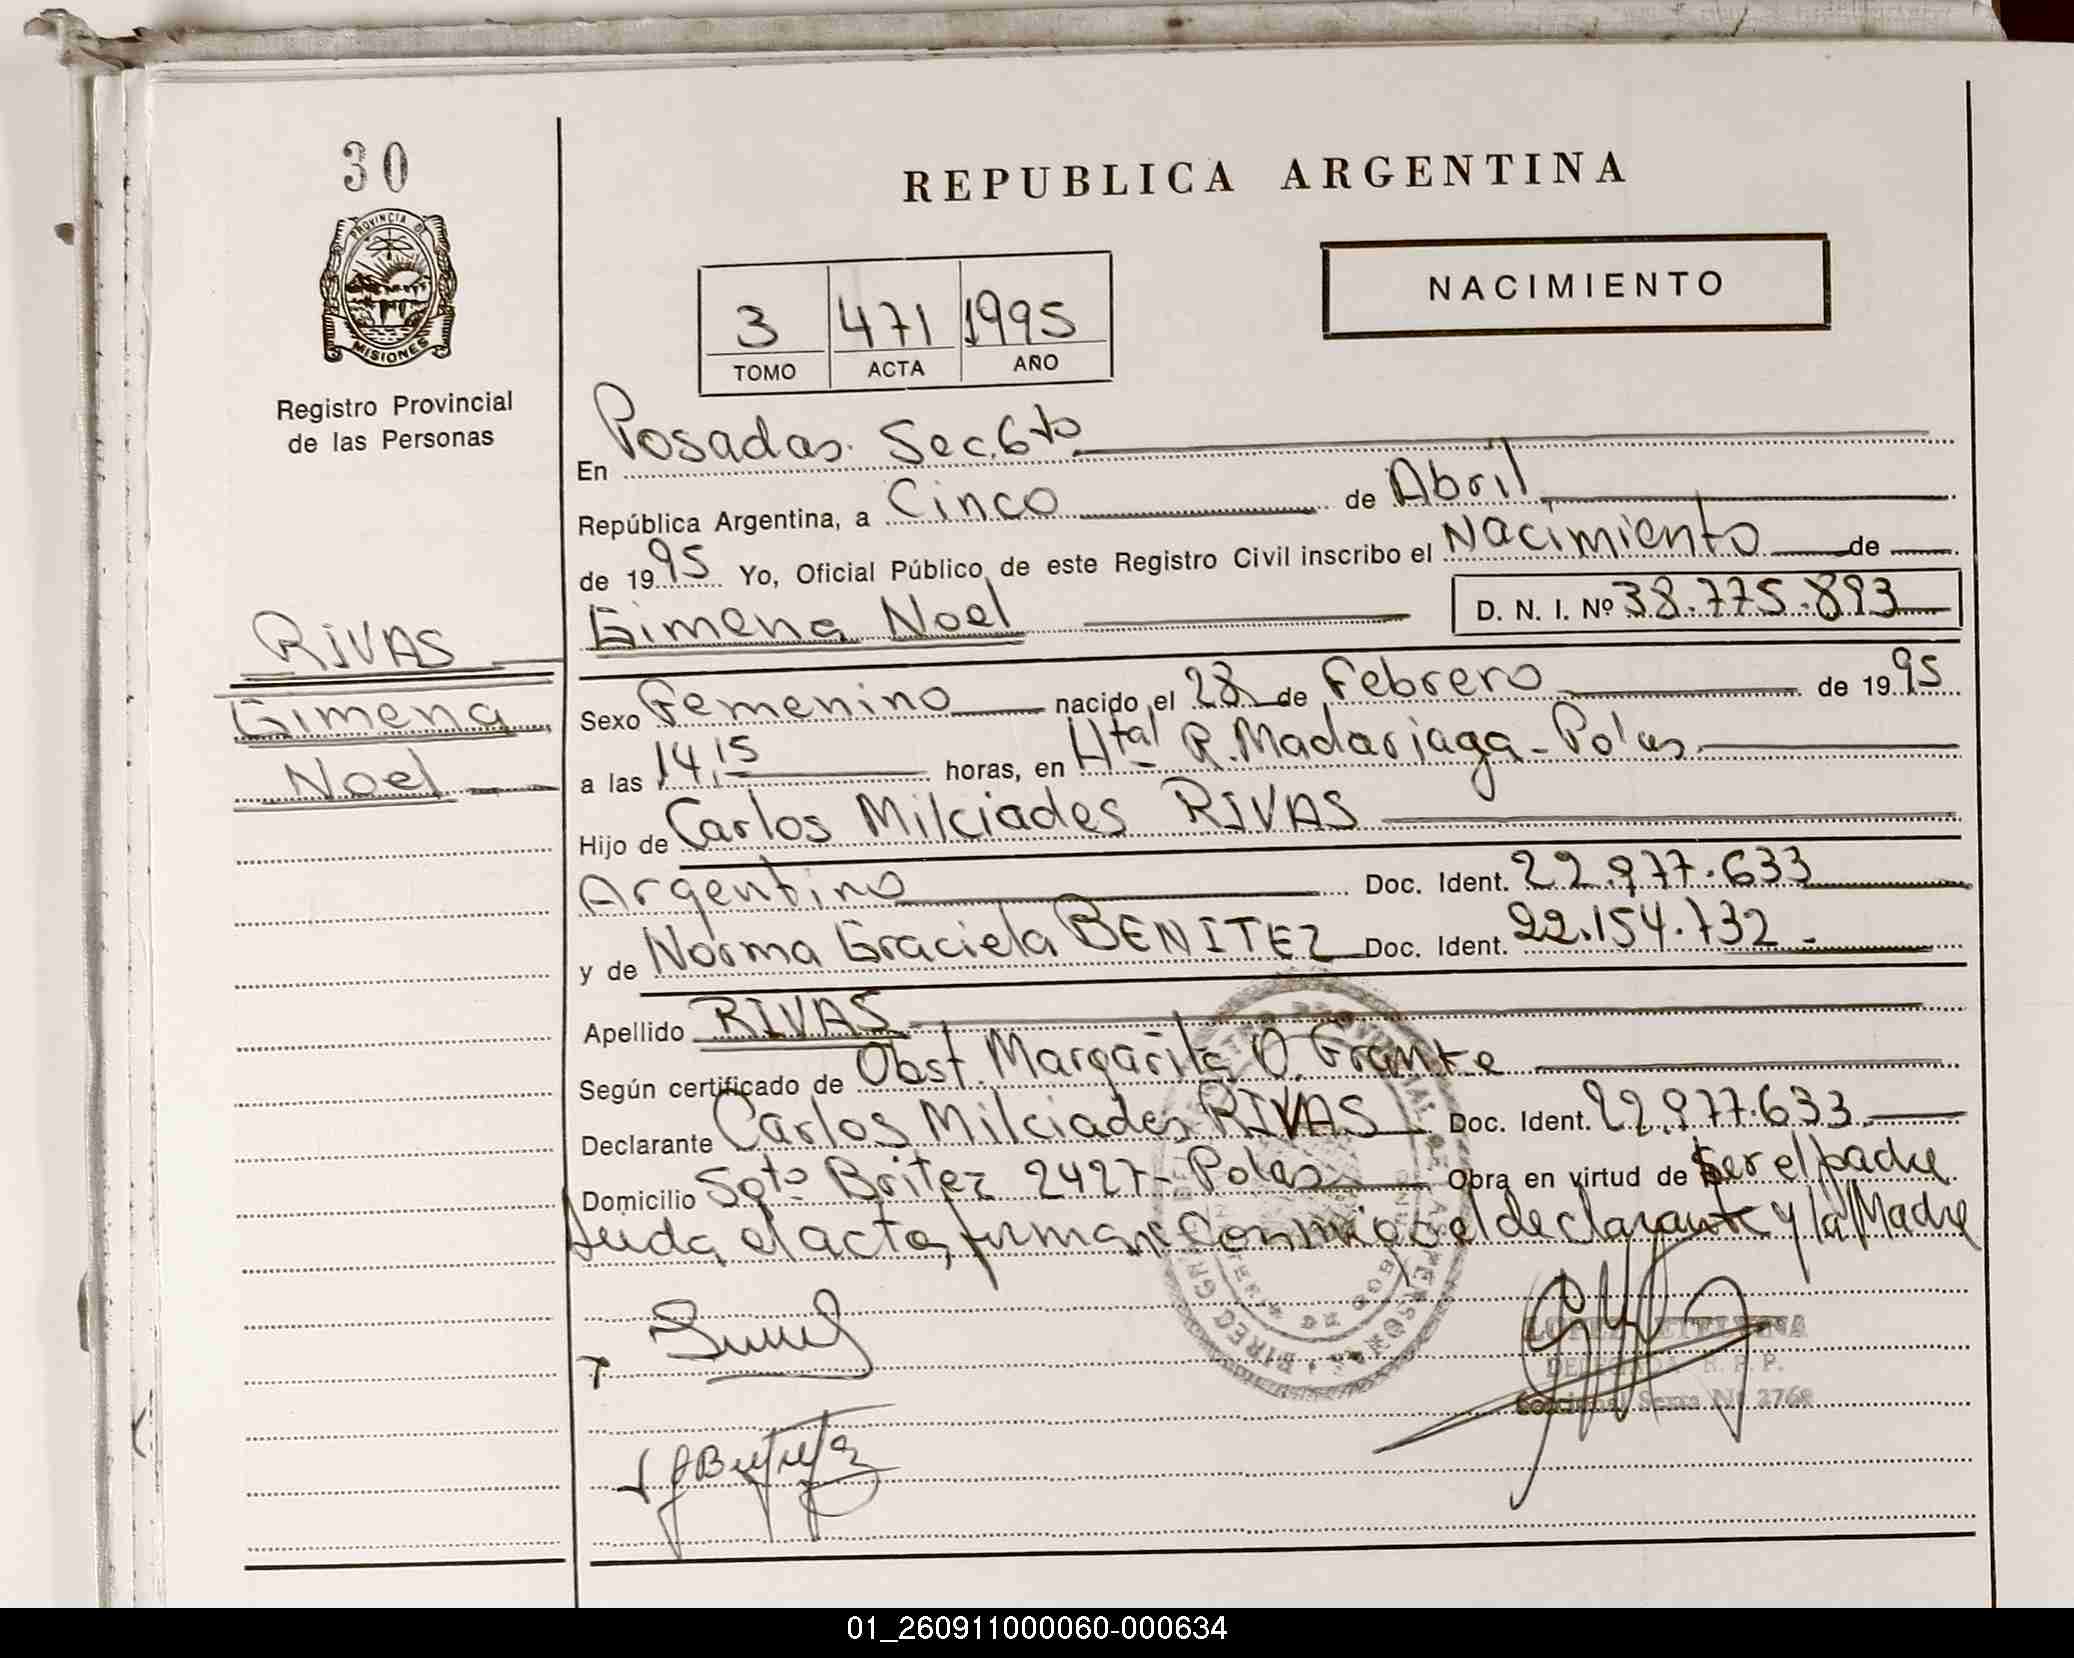 30
PROVINCIA DE
MISIONES
Registro Provincial
de las Personas
REPUBLICA ARGENTINA
NACIMIENTO
3 471 1995
TOMO ACTA AÑO
En Posadas. Sec. 6to
República Argentina, a Cinco de Abril
de 1995 Yo, Oficial Público de este Registro Civil inscribo el Nacimiento de
Gimena Noel D. N. I. Nº 38.775.893
RIVAS
Gimena
Noel
Sexo Femenino nacido el 28 de Febrero de 1995
a las 14,15 horas, en Htal R. Madariaga - Pdas.
Hijo de Carlos Milciades RIVAS
Argentino Doc. Ident. 22.977.633
y de Norma Graciela BENITEZ Doc. Ident. 22.154.732.-
Apellido RIVAS
Según certificado de Obst. Margarita O.
Declarante Carlos Milciades RIVAS Doc. Ident. 22.977.633.
Domicilio Sgto Britez 2427 - Pdas Obra en virtud de Ser el padre
Leida el acta, firman conmigo el declarante y la Madre
LOPEZ
DELEGADA R. P. P.
Nº 2768
01_260911000060-000634